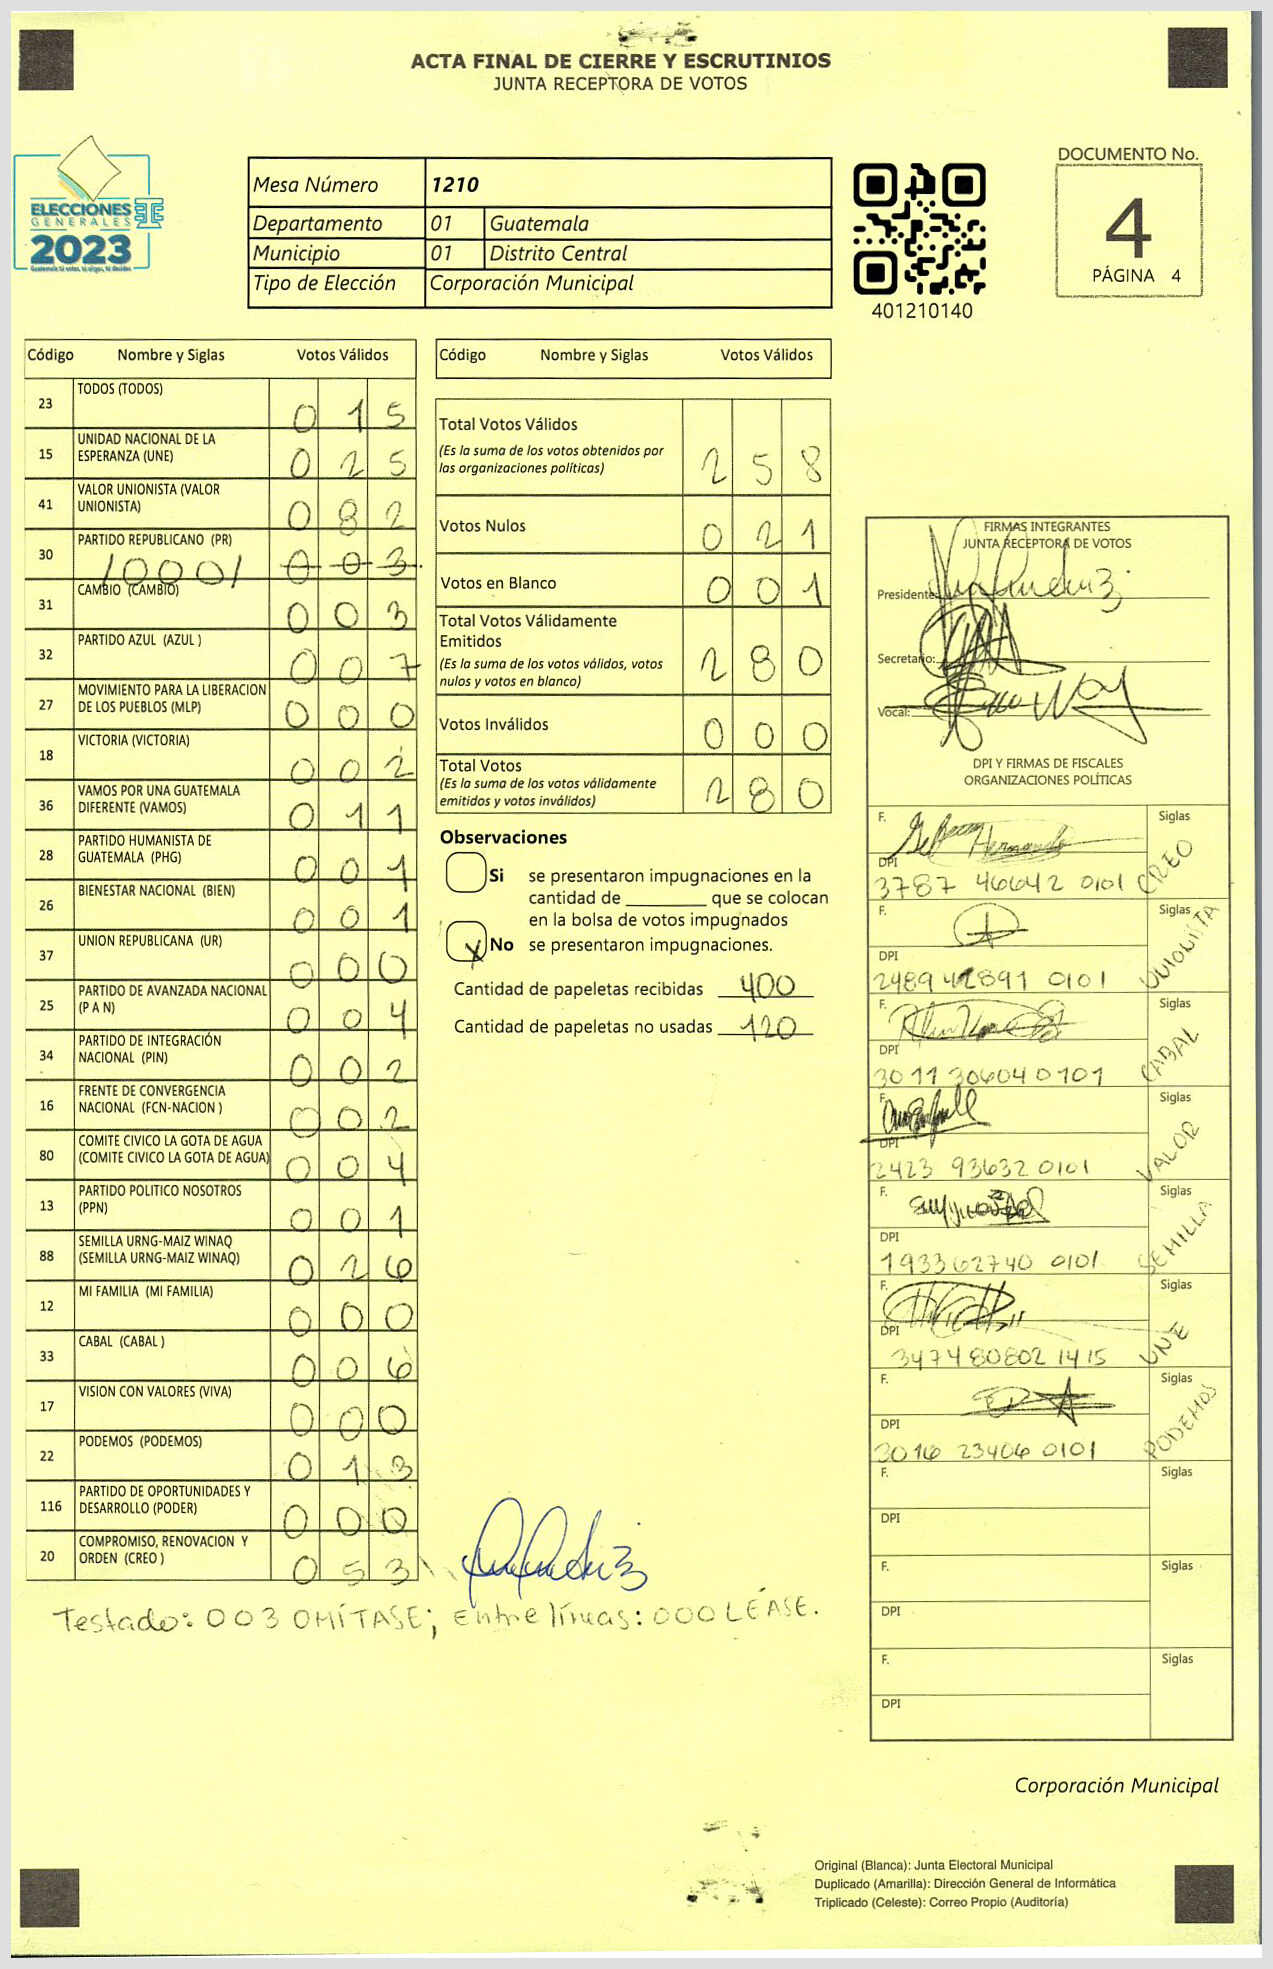 ACTA FINAL DE CIERRE Y ESCRUTINIOS
JUNTA RECEPTORA DE VOTOS
ELECCIONES
GENERALES
2023
Mesa Número 1210
Departamento 01 Guatemala
Municipio 01 Distrito Central
Tipo de Elección Corporación Municipal
401210140
DOCUMENTO No.
4
PÁGINA 4
Código Nombre y Siglas Votos Válidos
23 TODOS (TODOS) 0 1 5
15 UNIDAD NACIONAL DE LA
ESPERANZA (UNE) 0 2 5
41 VALOR UNIONISTA (VALOR
UNIONISTA) 0 8 2
30 PARTIDO REPUBLICANO (PR) /000/ 0 0 3
31 CAMBIO (CAMBIO) 0 0 3
32 PARTIDO AZUL (AZUL ) 0 0 7
27 MOVIMIENTO PARA LA LIBERACION
DE LOS PUEBLOS (MLP) 0 0 0
18 VICTORIA (VICTORIA) 0 0 2
36 VAMOS POR UNA GUATEMALA
DIFERENTE (VAMOS) 0 1 1
28 PARTIDO HUMANISTA DE
GUATEMALA (PHG) 0 0 1
26 BIENESTAR NACIONAL (BIEN) 0 0 1
37 UNION REPUBLICANA (UR) 0 0 0
25 PARTIDO DE AVANZADA NACIONAL
(P A N) 0 0 4
34 PARTIDO DE INTEGRACIÓN
NACIONAL (PIN) 0 0 2
16 FRENTE DE CONVERGENCIA
NACIONAL (FCN-NACION ) 0 0 2
80 COMITE CIVICO LA GOTA DE AGUA
(COMITE CIVICO LA GOTA DE AGUA) 0 0 4
13 PARTIDO POLITICO NOSOTROS
(PPN) 0 0 1
88 SEMILLA URNG-MAIZ WINAQ
(SEMILLA URNG-MAIZ WINAQ) 0 2 6
12 MI FAMILIA (MI FAMILIA) 0 0 0
33 CABAL (CABAL ) 0 0 6
17 VISION CON VALORES (VIVA) 0 0 0
22 PODEMOS (PODEMOS) 0 1 3
116 PARTIDO DE OPORTUNIDADES Y
DESARROLLO (PODER) 0 0 0
20 COMPROMISO, RENOVACION Y
ORDEN (CREO ) 0 5 3
Testado: 003 OMÍTASE; Entre líneas: 000 LÉASE.
Código Nombre y Siglas Votos Válidos
Total Votos Válidos
(Es la suma de los votos obtenidos por
las organizaciones políticas) 2 5 8
Votos Nulos 0 2 1
Votos en Blanco 0 0 1
Total Votos Válidamente
Emitidos
(Es la suma de los votos válidos, votos
nulos y votos en blanco) 2 8 0
Votos Inválidos 0 0 0
Total Votos
(Es la suma de los votos válidamente
emitidos y votos inválidos) 2 8 0
Observaciones
Si se presentaron impugnaciones en la
cantidad de ________ que se colocan
en la bolsa de votos impugnados
X No se presentaron impugnaciones.
Cantidad de papeletas recibidas 400
Cantidad de papeletas no usadas 120
FIRMAS INTEGRANTES
JUNTA RECEPTORA DE VOTOS
Presidente:
Secretario:
Vocal:
DPI Y FIRMAS DE FISCALES
ORGANIZACIONES POLÍTICAS
F. Siglas
DPI
3787 46642 0101 CREO
F. Siglas
DPI
2489 42891 0101 UNIONISTA
F. Siglas
DPI
3011 30604 0101 CABAL
F. Siglas
DPI
2423 93632 0101 VALOR
F. Siglas
DPI
1933 62740 0101 SEMILLA
F. Siglas
DPI
3474 80802 1415 UNE
F. Siglas
DPI
3016 23406 0101 PODEMOS
F. Siglas
DPI
F. Siglas
DPI
F. Siglas
DPI
Corporación Municipal
Original (Blanca): Junta Electoral Municipal
Duplicado (Amarilla): Dirección General de Informática
Triplicado (Celeste): Correo Propio (Auditoría)